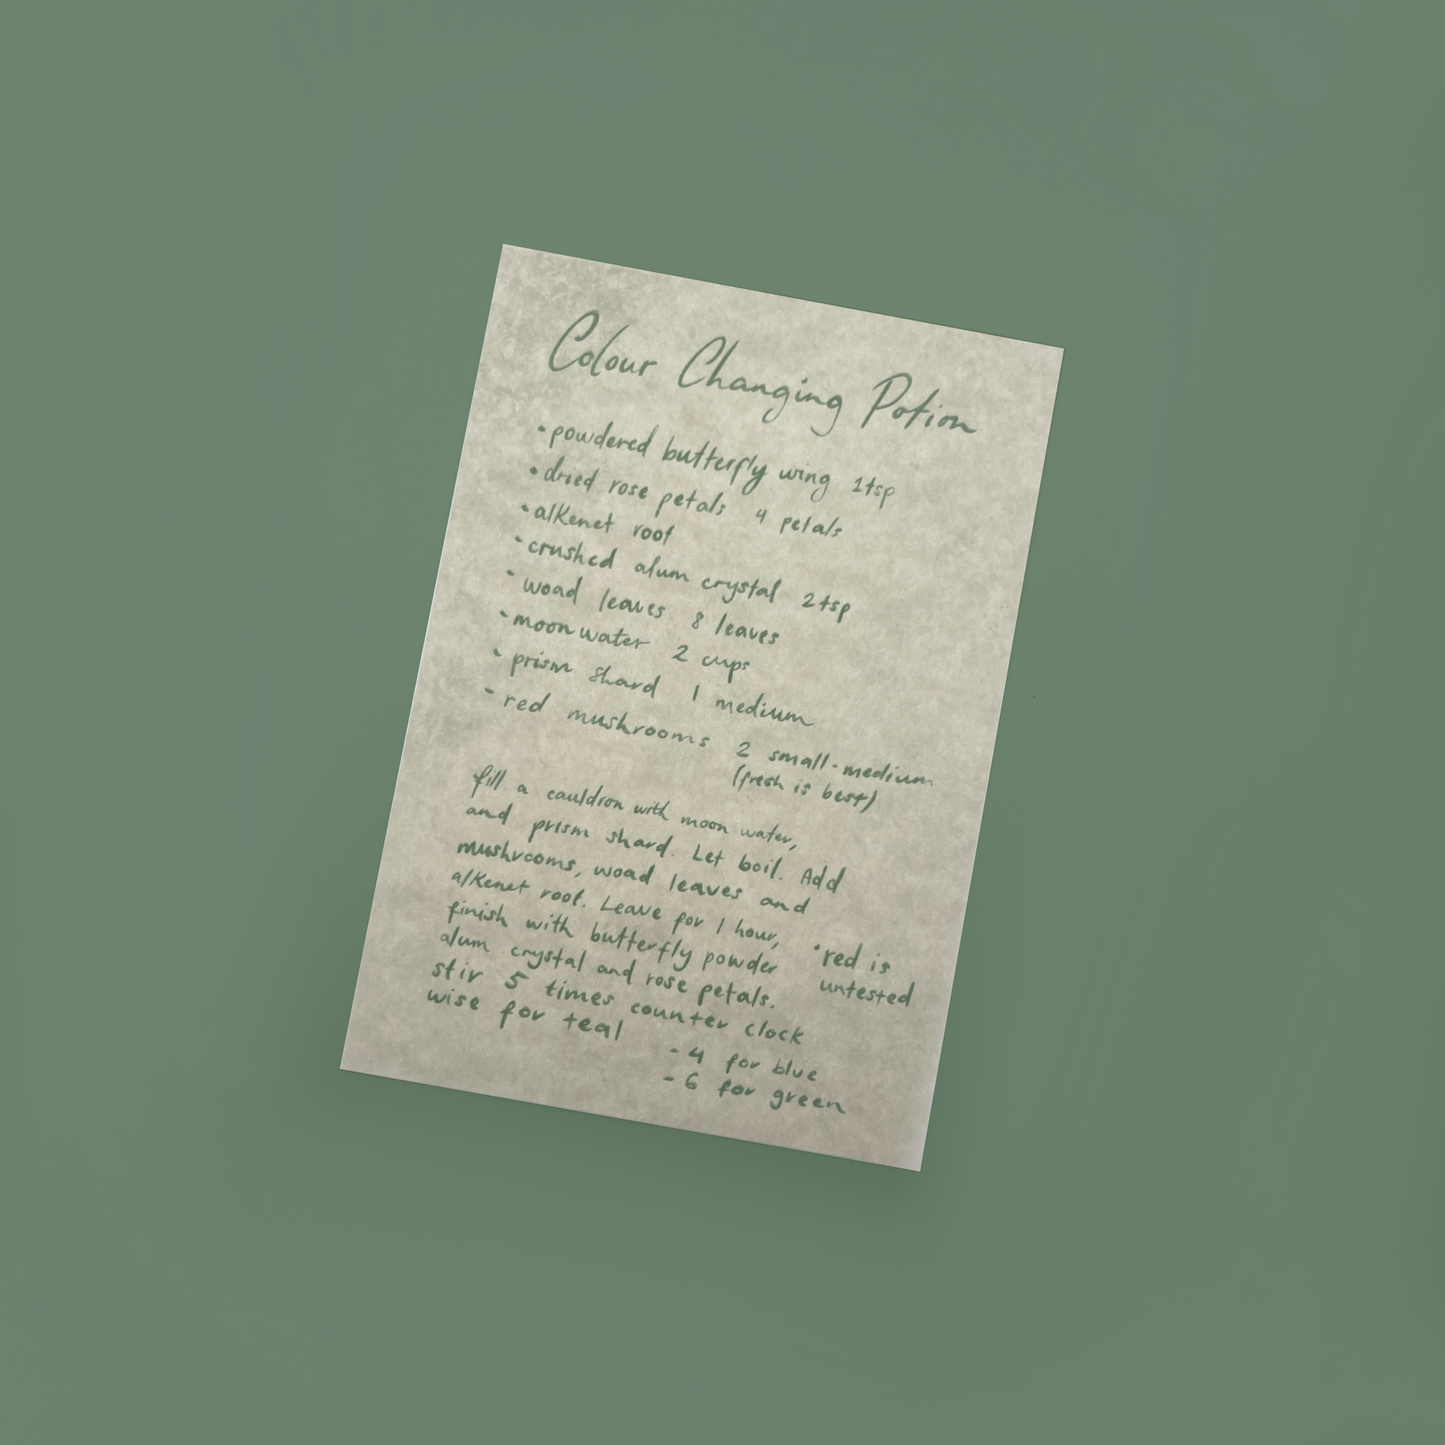 Colour Changing Potion
• powdered butterfly wing 1tsp
• dried rose petals 4 petals
• alkenet root
• crushed alum crystal 2tsp
• woad leaves 8 leaves
• moon water 2 cups
• prism shard 1 medium
• red mushrooms 2 small-medium
(fresh is best)
fill a cauldron with moon water,
and prism shard. Let boil. Add
mushrooms, woad leaves and
alkenet root. Leave for 1 hour,
finish with butterfly powder
alum crystal and rose petals.
stir 5 times counter clock
wise for teal
- 4 for blue
- 6 for green
• red is
untested